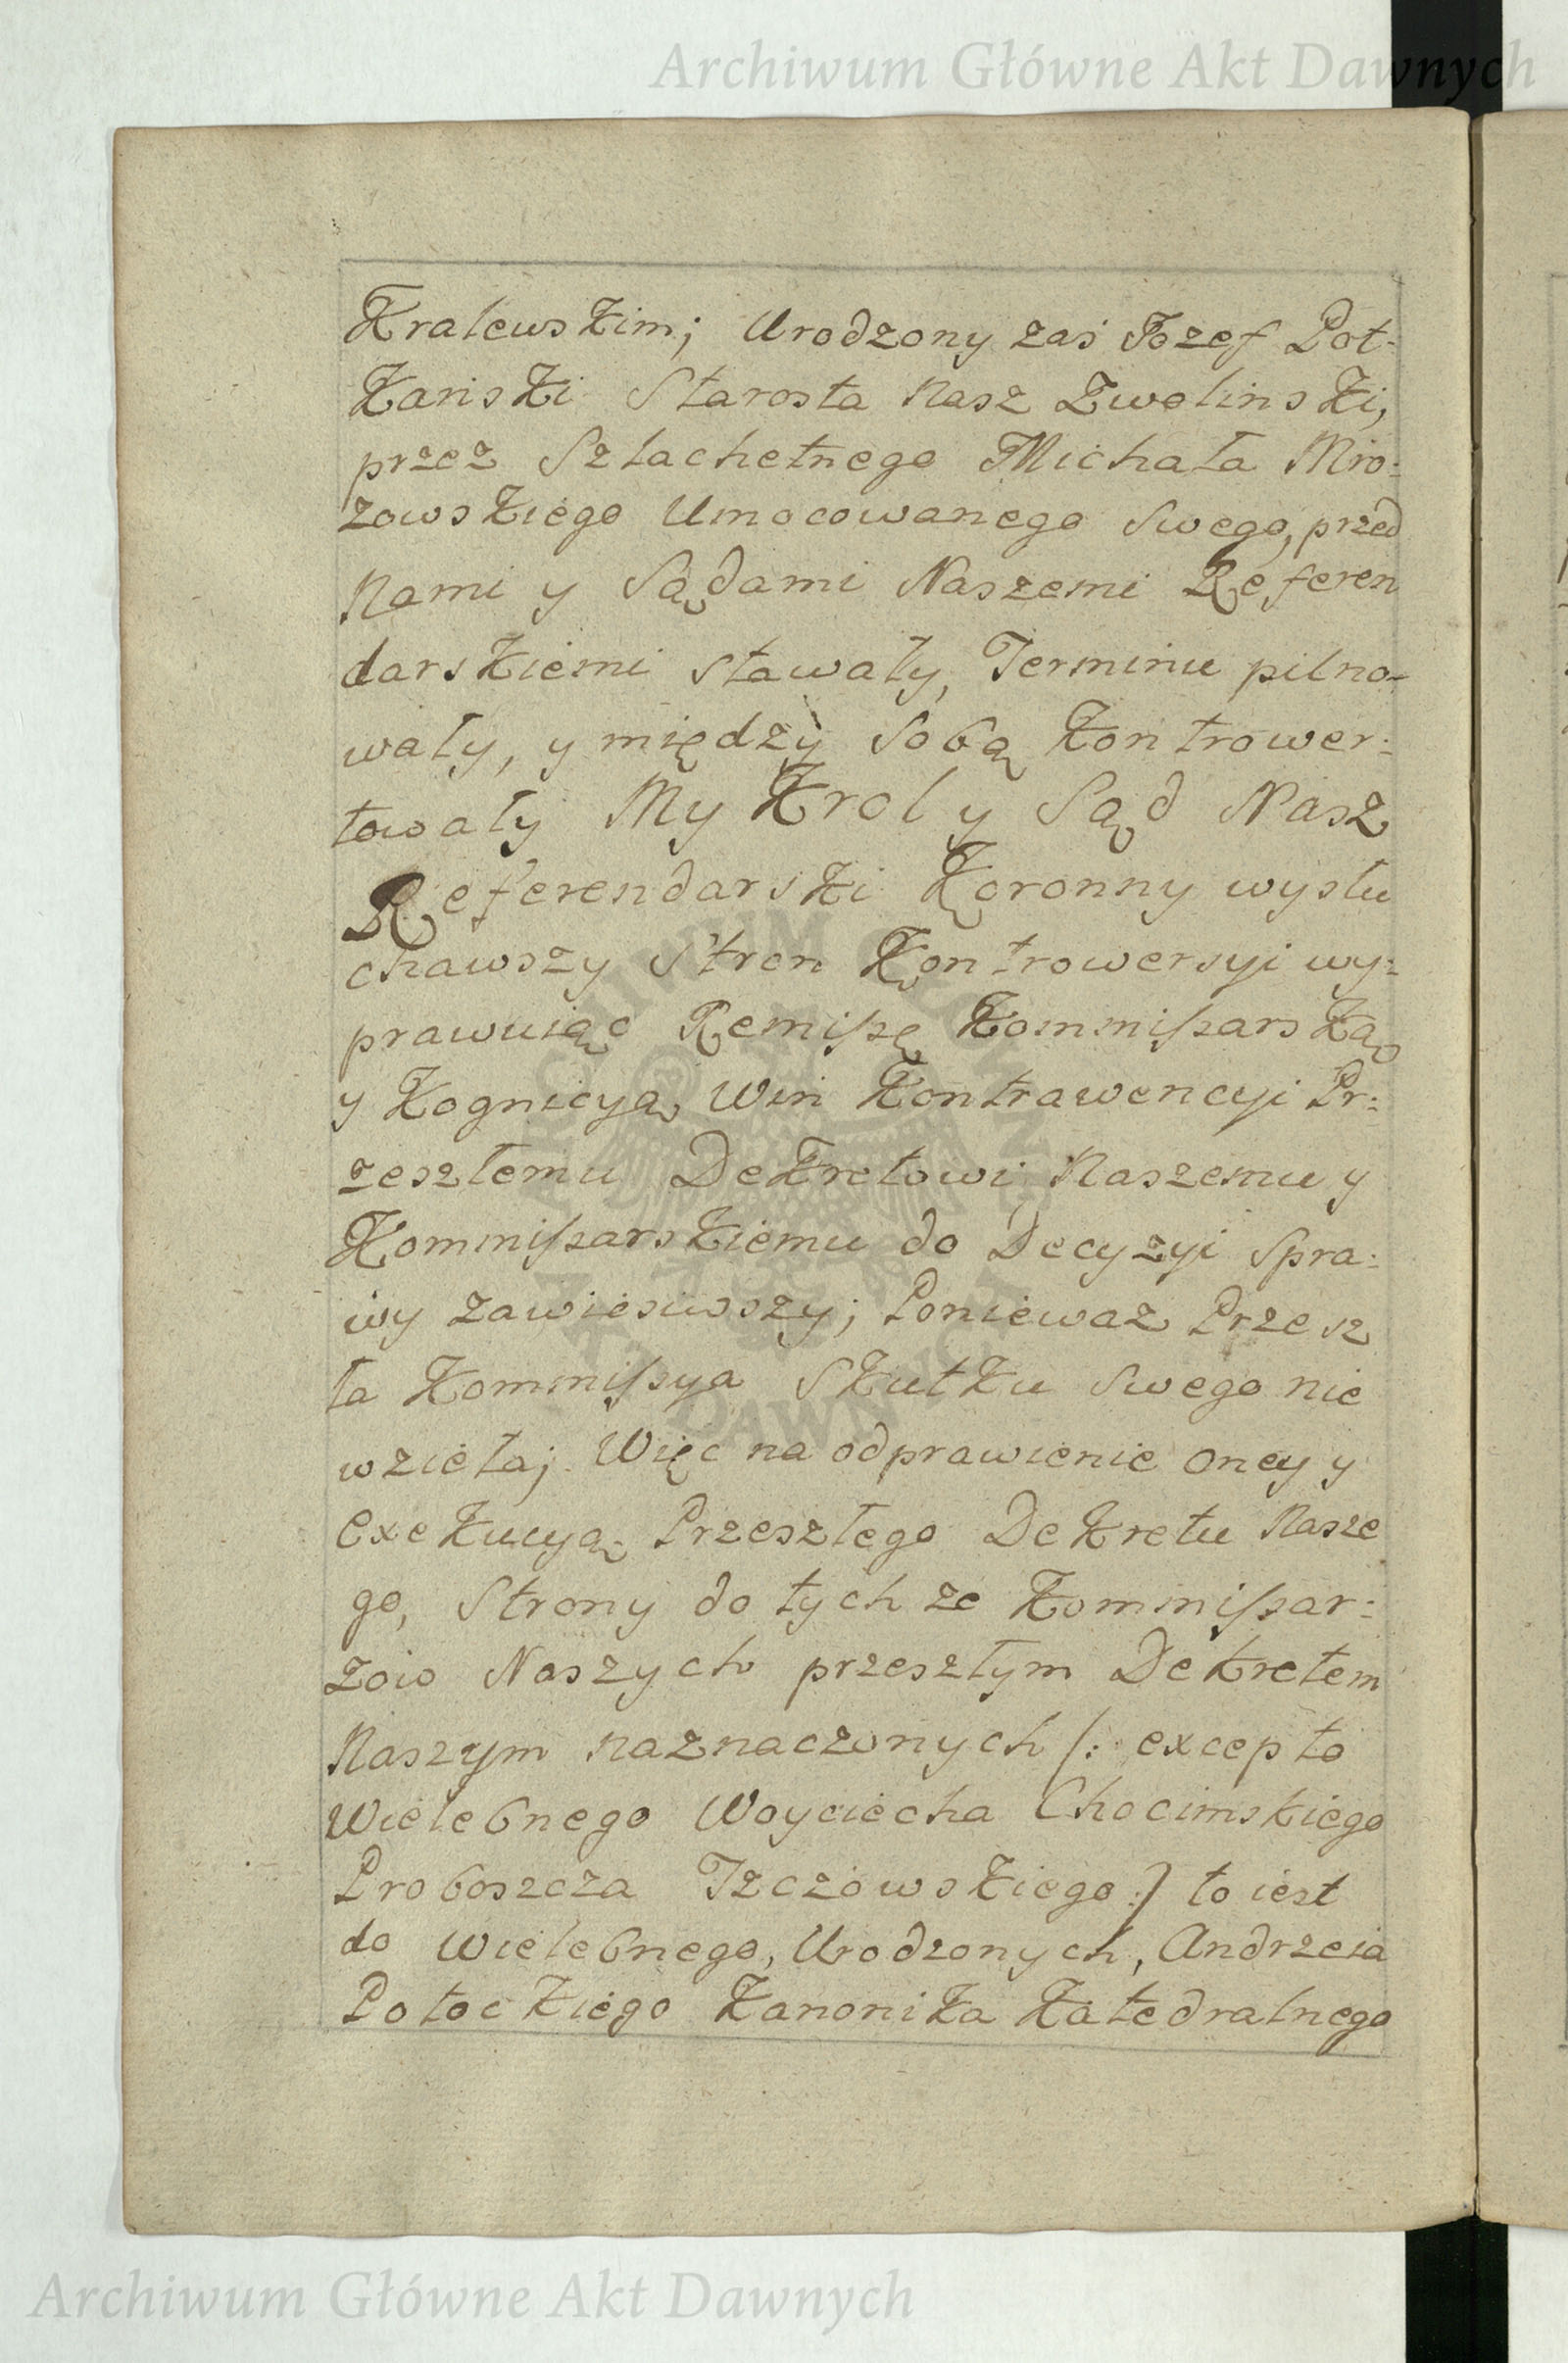 Archiwum Główne Akt Dawnych
Kralewskim; Urodzony zaś Jozef Pot:
kański Starosta Nasz Zwolinski,
przez Szlachetnego Michała Mro:
zowskiego Umocowanego Swego, przed
Nami y Sądami Naszemi Referen
darskiemi stawały, Terminu pilno-
wały, y między Sobą kontrower:
towały My Krol y Sąd Nasz
Referendarski Koronny wysłu
chawszy Stron Kontrowersyi wy:
prawuiąc Remißę Kommißarską
y Kognicyą Win Kontrawencyi Pr:
zeszłemu Dekretowi Naszemu y
Kommißarskiemu do Decyzyi Spra:
wy zawiesiwszy; Poniewaz Przesz
ła Kommißya Skutku Swego nie
wzieła; Więc na odprawienie oney y
Exekucyą Przeszłego Dekretu Nasze
go, Strony do tych ze Kommißar:
zow Naszych przeszłym Dekretem
Naszym naznaczonych /: excepto
Wielebnego Woyciecha Chocimskiego
Proboszcza Tczowskiego :/ to iest
do Wielebnego, Urodzonych, Andrzeia
Potockiego Kanonika Katedralnego
Archiwum Główne Akt Dawnych